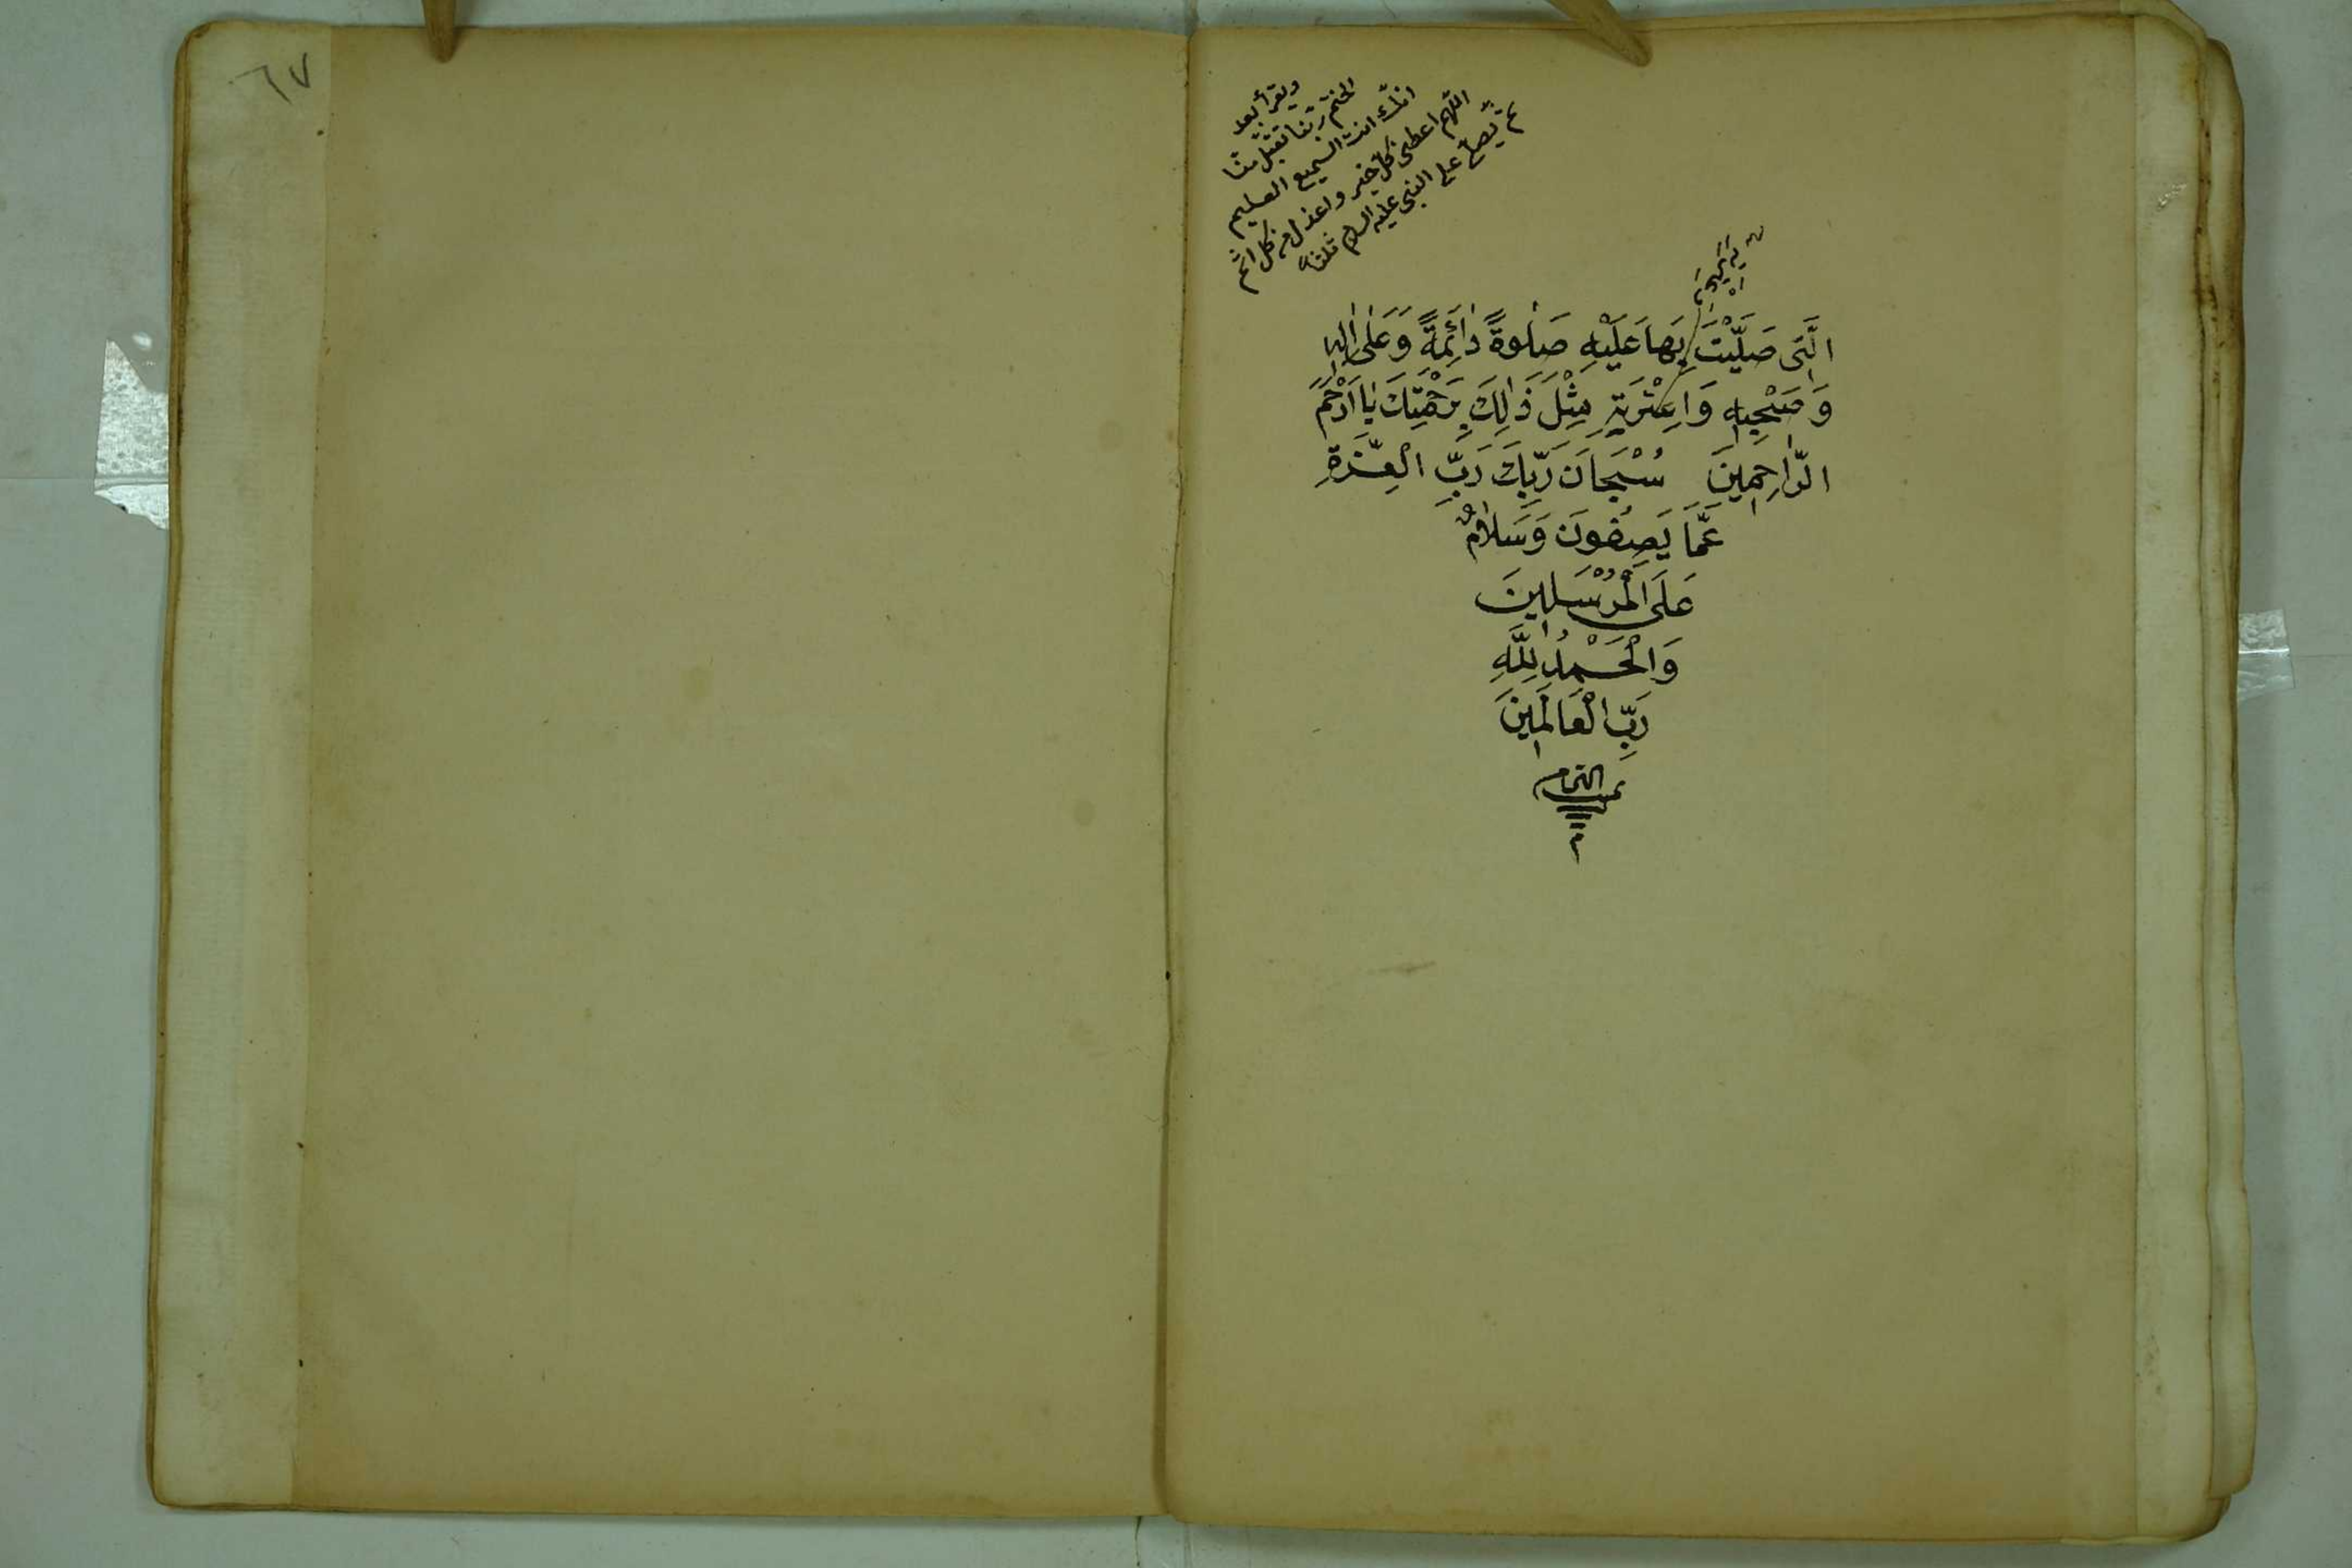 ويقرأ بعد
الختم ربنا تقبل منا
انك انت السميع العليم
اللهم اعطنى كل خير واعذنى من كل اثم
ثم يصلى على النبى عليه السلام ثلثا
الَّتِى صَلَّيْتَ بِهَا عَلَيْهِ صَلٰوةً دٰائِمَةً وَعَلٰى اٰلِهِ
وَصَحْبِهِ وَاعِتْرَتِهِ مِثْلَ ذٰلِكَ بِرَحْمَتِكَ يٰا اَرْحَمَ
الرّٰاحِمِينَ سُبْحَانَ رَبِّكَ رَبِّ الْعِزَّةِ
عَمَّا يَصِفُونَ وَسَلٰامٌ
عَلَى الْمُرْسَلِينَ
وَالْحَمْدُ لِلّٰهِ
رَبِّ الْعَالَمِينَ
تمت التمام
م
٦٧